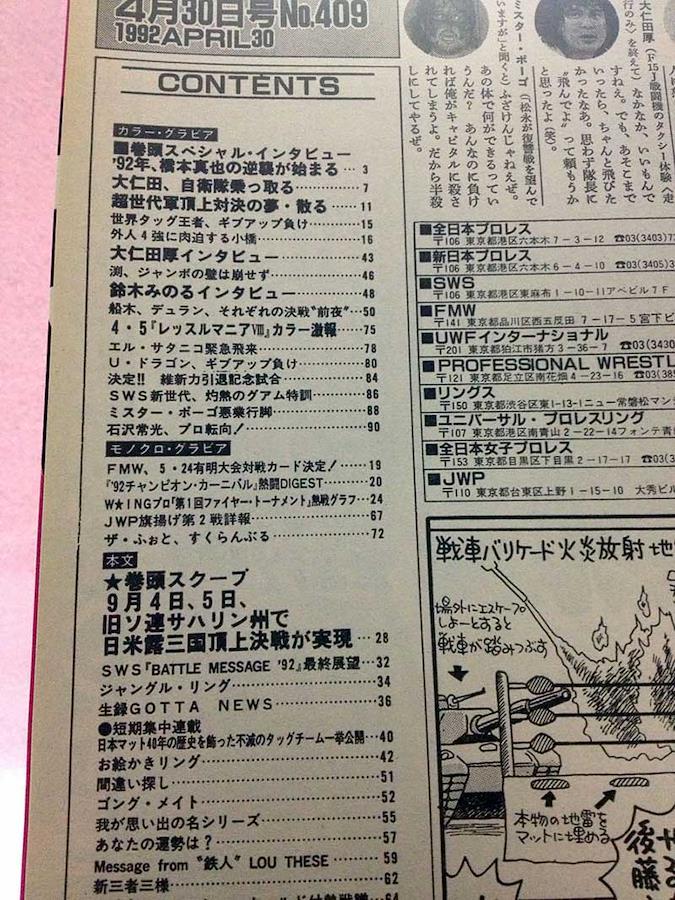 4月30日号No.409
1992 APRIL 30
CONTENTS
カラー・グラビア
■巻頭スペシャル・インタビュー
'92年、橋本真也の逆襲が始まる… 3
大仁田、自衛隊乗っ取る… 7
超世代軍頂上対決の夢・散る… 11
世界タッグ王者、ギブアップ負け… 15
外人4強に肉迫する小橋… 16
大仁田厚インタビュー… 43
渕、ジャンボの壁は崩せず… 46
鈴木みのるインタビュー… 48
船木、デュラン、それぞれの決戦〝前夜〟…50
4・5『レッスルマニアⅧ』カラー激報… 75
エル・サタニコ緊急飛来… 78
U・ドラゴン、ギブアップ負け… 80
決定!! 維新力引退記念試合… 84
SWS新世代、灼熱のグアム特訓… 86
ミスター・ポーゴ悪業行脚… 88
石沢常光、プロ転向!… 90
モノクロ・グラビア
FMW、5・24有明大会対戦カード決定!… 19
『'92チャンピオン・カーニバル』熱闘DIGEST… 20
W★INGプロ「第1回ファイヤー・トーナメント」熱戦グラフ…24
JWP旗揚げ第2戦詳報… 67
ザ・ふぉと、すくらんぶる… 72
本文
★巻頭スクープ
9月4日、5日、
旧ソ連サハリン州で
日米露三国頂上決戦が実現… 28
SWS『BATTLE MESSAGE '92』最終展望…32
ジャングル・リング… 34
生録GOTTA NEWS… 36
●短期集中連載
日本マット40年の歴史を飾った不滅のタッグチーム一挙公開…40
お絵かきリング… 42
間違い探し… 51
ゴング・メイト… 52
我が思い出の名シリーズ… 55
あなたの運勢は?… 57
Message from〝鉄人〟LOU THESE… 59
新三者三様… 62
大仁田厚(F15J戦闘機のタクシー体験〈走
行のみ〉を終えて)なかなか、いいもんで
すねえ。でも、あそこまで
いったら、ちゃんと飛びた
かったなあ。思わず隊長に
〝飛んでよ〟って頼もうか
と思ったよ(笑)。
ミスター・ポーゴ(「松永が復讐戦を望んで
いますが」と聞くと)ふざけんじゃねえぜ。
あの体で何ができるってい
うんだ? あんなのに負け
れば俺がキャピタルに殺さ
れてしまうよ。だから半殺
しにしてやるぜ。
■全日本プロレス
〒106 東京都港区六本木7-3-12 ☎03(3403)7
■新日本プロレス
〒106 東京都港区六本木6-4-10 ☎03(3405)3
■SWS
〒106 東京都港区東麻布1-10-11アベビル7F
■FMW
〒141 東京都品川区西五反田7-17-5宮下ビ
■UWFインターナショナル
〒201 東京都狛江市猪方3-36-7 ☎03(3430
■PROFESSIONAL WRESTL
〒121 東京都足立区南花畑4-23-16 ☎03(385
■リングス
〒150 東京都渋谷区東1-13-1ニュー常磐松マン
■ユニバーサル・プロレスリング
〒107 東京都港区南青山2-22-14フォンテ青
■全日本女子プロレス
〒153 東京都目黒区下目黒2-17-17 ☎03(3
■JWP
〒110 東京都台東区上野1-15-10 大秀ビル
戦車バリケード火炎放射地
場外にエスケープ
しよーとすると
戦車が踏みつぶす
本物の地雷を
マットに埋める
後藤